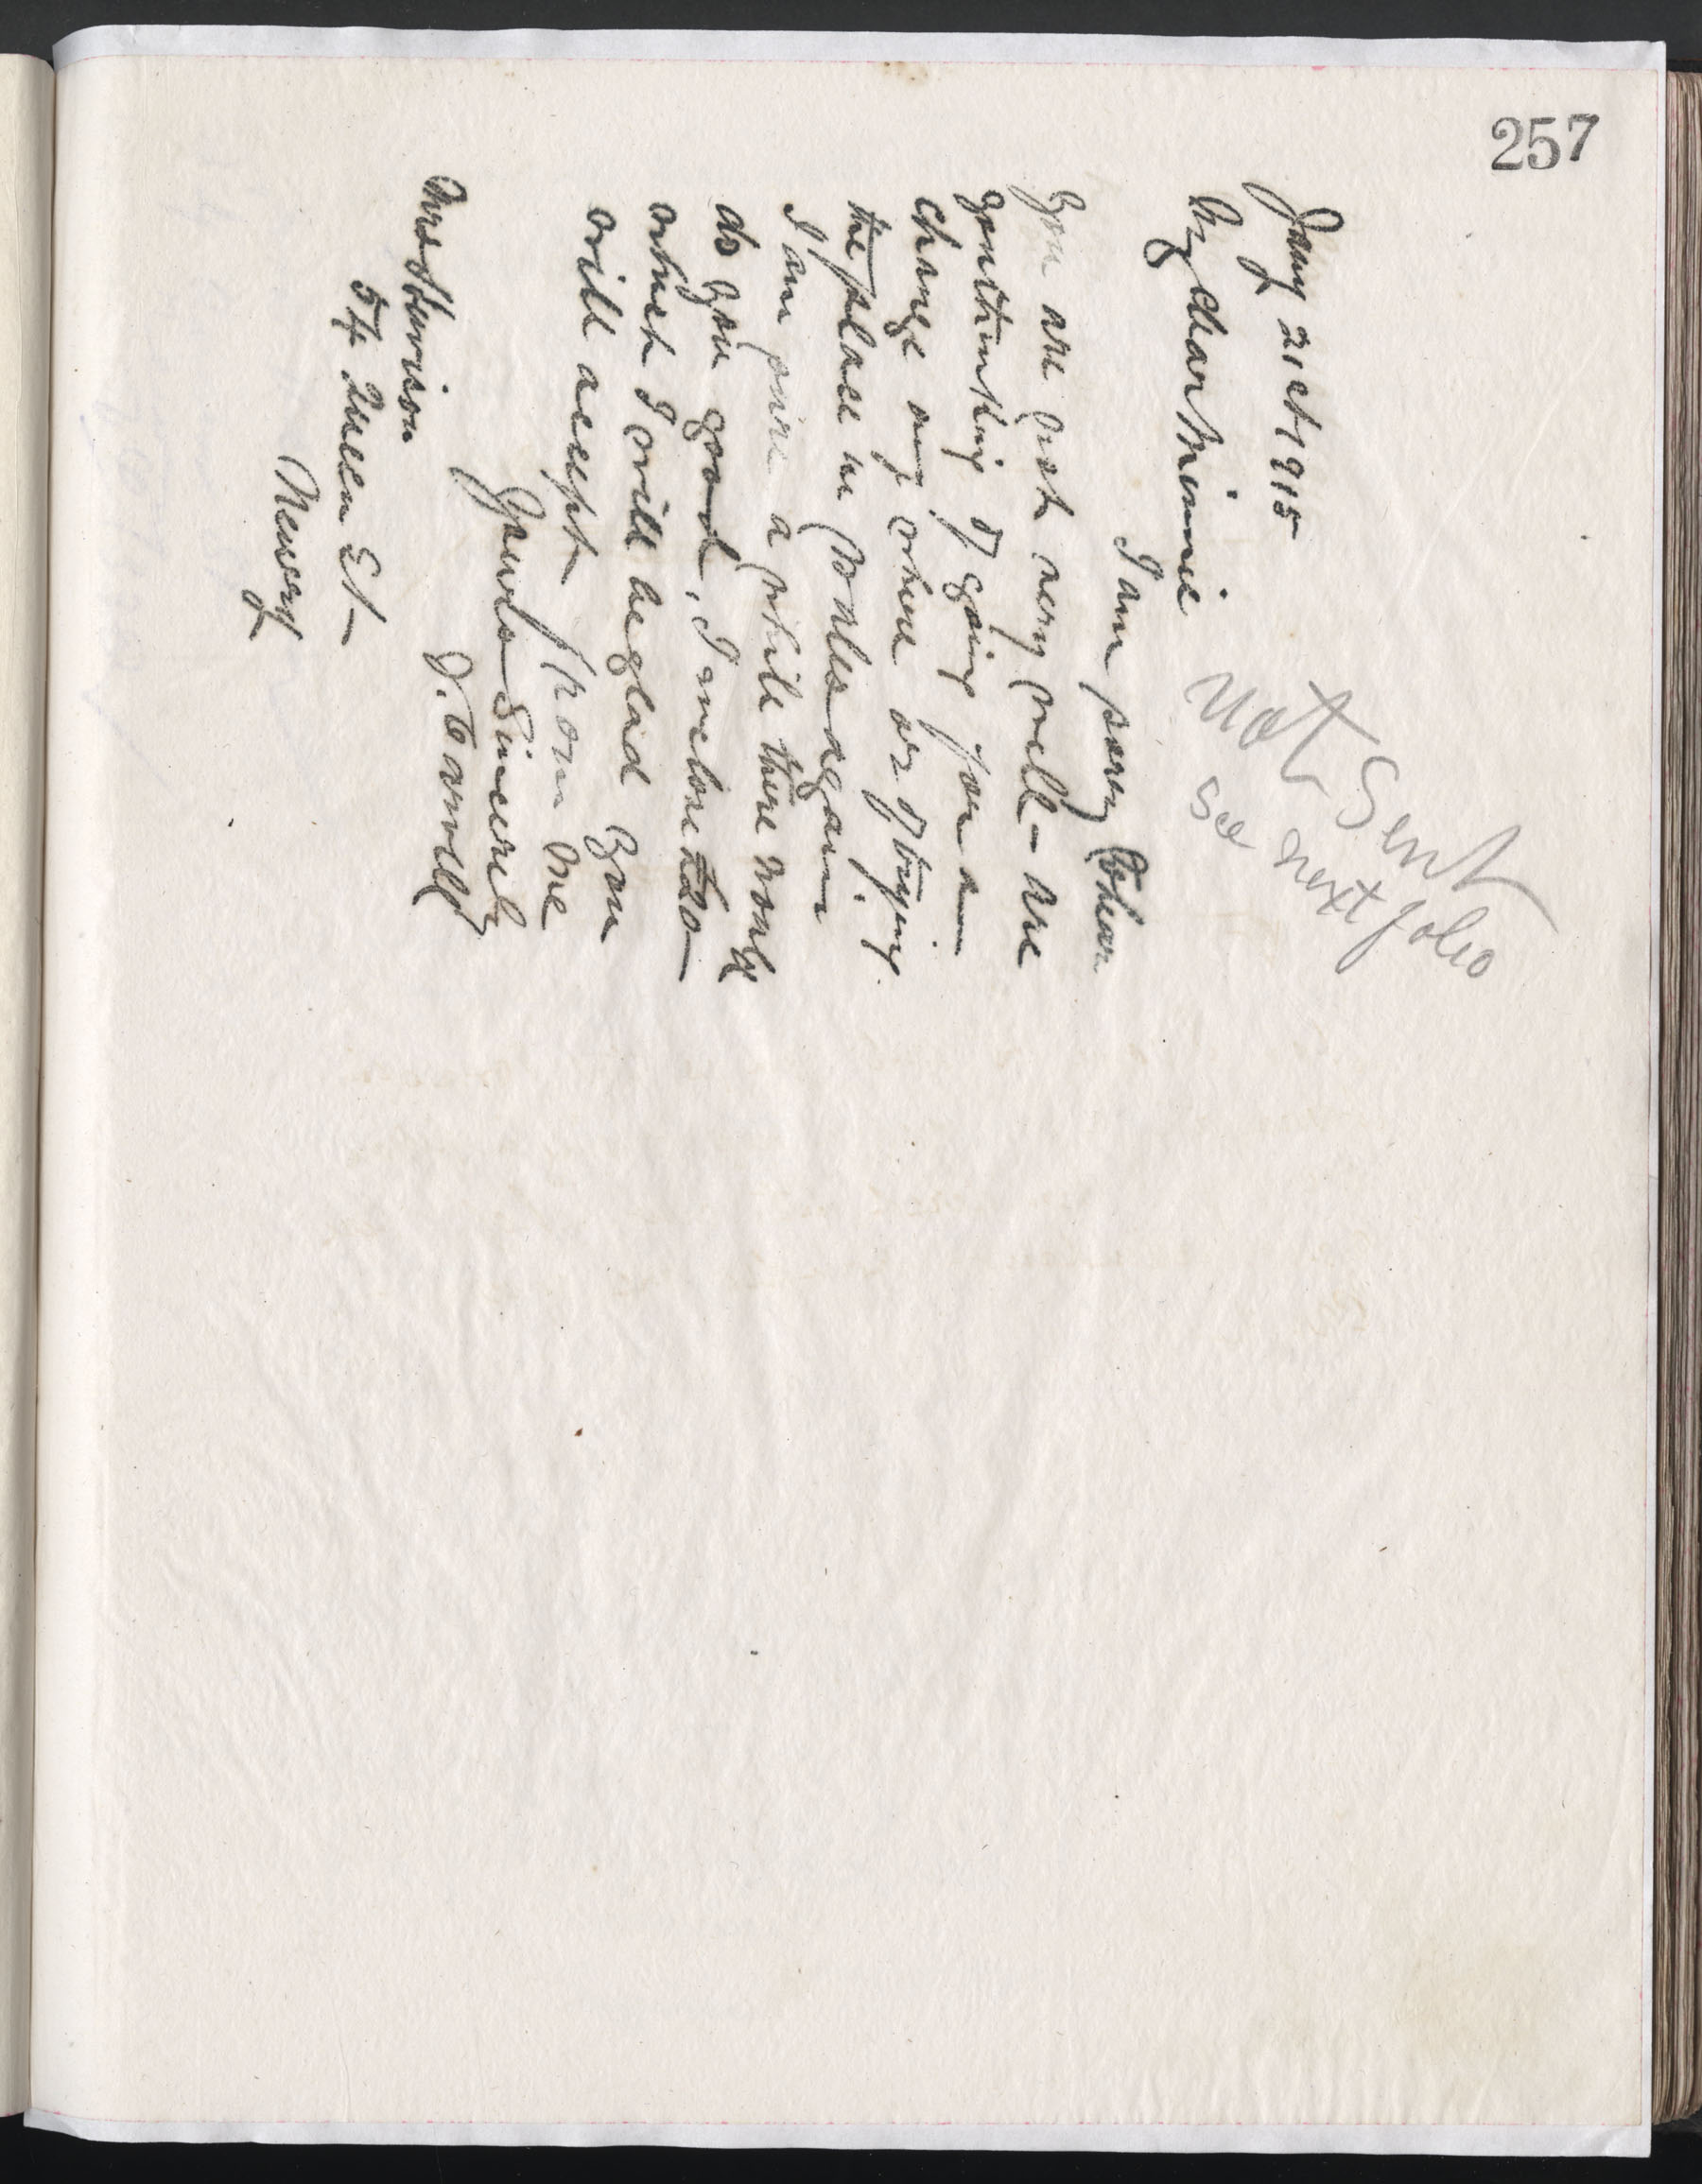 257
Jany 21st 1915
My dear Minnie
Not Sent
see next folio
I am sorry to hear
you are not very well - are
you thinking of going for a
change any where or of trying
the place in Wales again
I am sure a while there would
do you good, I enclose £20 -
which I will be glad you
will accept from me
Yours Sincerely
J. Carvill
Mrs Harrison
54 Queen St
Newry